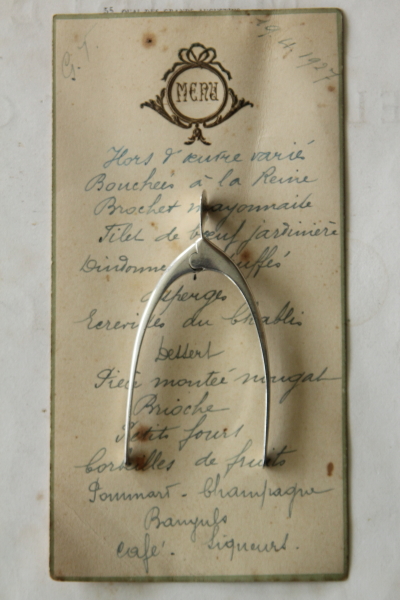 G. 7
1927
MENU
Hors d'œuvre variés
Bouchées à la Reine
Brochet mayonnaise
Filet de bœuf Jardinière
Dindonne truffés
asperges
Ecrevisses au Chablis
Dessert
Pièce montée nougat
Brioche
Petits fours
Corbeilles de fruits
Pommart - Champagne
Banyuls
Café. Liqueurs.